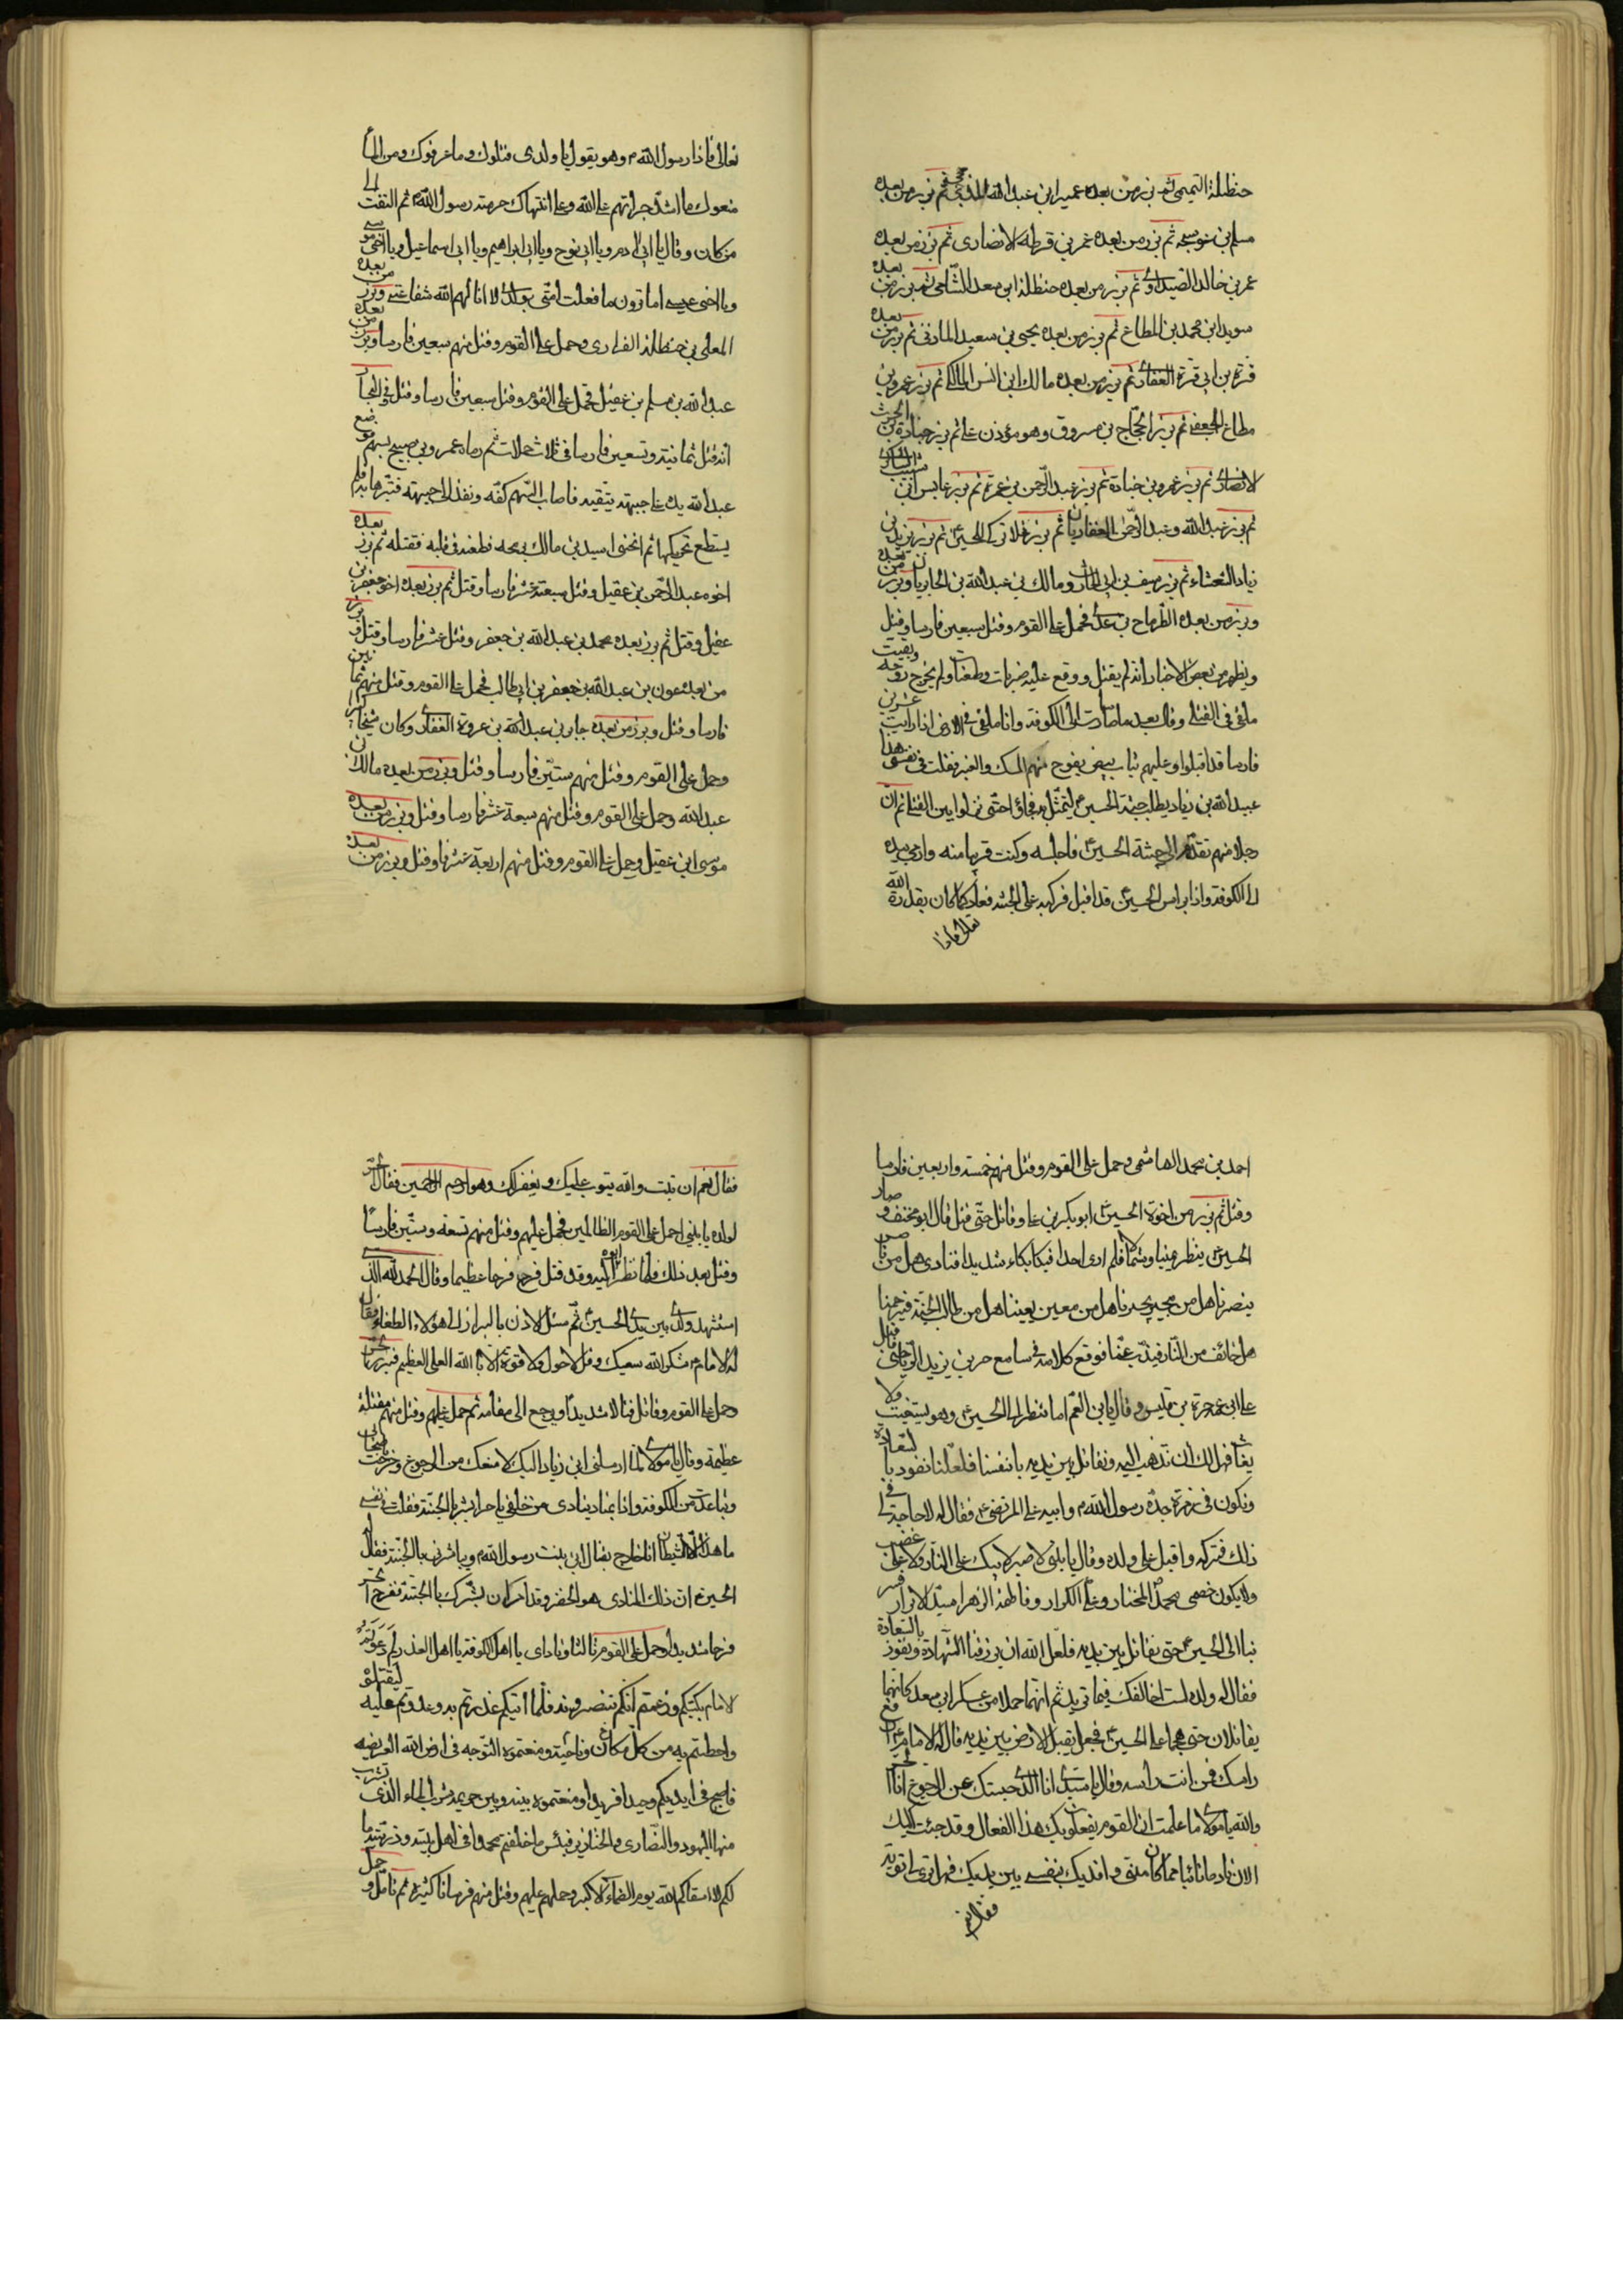 حنظلة التميمى ثم برز من بعده عمير ابن عبد الله المذحجى ثم برز من بعده
مسلم بن عوسجه ثم برز من بعده عمر بن قرطه الانصارى ثم برز من بعده
عمر بن خالد الصيداوى ثم برز من بعده حنظلة ابن سعد الشامى ثم برز من بعده
سويد ابن محمد بن المطاع ثم برز من بعده يحيى بن سعيد المازنى ثم برز من بعده
قرة بن ابى قرة الغفارى ثم برز من بعده مالك ابن انس المالكى ثم برز عمرو بن
مطاع الجعفى ثم برز الحجاج بن مسروق وهو مؤذن ثم برز جنادة بن الحرث
الانصارى ثم برز عمرو بن جنادة ثم برز عبد الرحمن بن عروة ثم برز عابس ابى شبيب الشاكرى
ثم برز عبد الله وعبد الرحمن الغفاريان ثم برز غلام تركى الحسين ثم برز يزيد بن
زياد الشعثاء ثم برز سيف بن ابى الحارث ومالك بن عبد الله بن الجابريان وبرز من بعده
وبرز من بعده الطرماح بن عدى فحمل على القوم وقتل سبعين فارسا وقتل
ويظهر من بعض الاخبار انه لم يقتل ووقع عليه ضربات وطعنات ولم يخرج روحه وبقيت
ملقى فى القتلى وقال بعد ما صارت الى الكوفة وانا ملقى فى الارض اذا رايت عشرين
فارسا قد اقبلوا وعليهم ثياب بيض يفوح منهم المسك والعنبر فقلت فى نفسى هذا
عبيد الله بن زياد يطلب جثة الحسين ع ليمثل به فجاؤا حتى نزلوا بين القتلى ثم ان
رجلا منهم تقدم الى جثة الحسين ع فاجلسه وكنت قريبا منه واومى بيده
الى الكوفة واذا براس الحسين ع قد اقبل فركبه على الجسد فعاد كما كان بقدرة الله
تعالى فاذا
تعالى فاذا رسول الله ص وهو يقول يا ولدى قتلوك وما عرفوك ومن الماء
منعوك ما اشد جراتهم على الله وعلى انتهاك حرمة رسول الله ص ثم التفت الى
من كان وقال يا ابى ادم ويا ابى نوح ويا ابى ابراهيم ويا ابى اسماعيل ويا اخى موسى
ويا اخى عيسى اما ترون ما فعلت امتى بولدى لا انالهم الله شفاعتى وبرز من بعده
المعلى بن حنظلة الغفارى وحمل على القوم وقتل منهم سبعين فارسا وبرز من بعده
عبد الله بن مسلم بن عقيل فحمل على القوم وقتل سبعين فارسا وقتل فى البحار
انه قتل ثمانية وتسعين فارسا فى ثلاث حملات ثم رماه عمرو بن صبيح بسهم موضع
عبد الله يده على جبهته يتقيه فاصاب السهم كفه ونفذ الى جبهته فسمرها به فلم
يستطع تحريكها ثم انحنى اسيد بن مالك برمحه فطعنه فى قلبه فقتله ثم برز بعده
اخوه عبد الرحمن بن عقيل وقتل سبعة عشر فارسا وقتل ثم برز بعده اخو جعفر بن
عقيل وقتل ثم برز بعده محمد بن عبد الله بن جعفر وقتل عشر فارسا وقتل وبرز
من بعده عون بن عبد الله بن جعفر بن ابى طالب فحمل على القوم وقتل منهم ثمانين
فارسا وقتل وبرز من بعده جابر بن عبد الله بن عروة الغفارى وكان شيخا كبيرا
وحمل على القوم وقتل منهم ستين فارسا وقتل وبرز من بعده مالك بن
عبد الله وحمل على القوم وقتل منهم سبعة عشر فارسا وقتل وبرز من بعده
موسى ابن عقيل وحمل على القوم وقتل منهم اربعة عشر فارسا وقتل وبرز من بعده
احمد بن محمد الهاشمى وحمل على القوم وقتل منهم خمسة واربعين فارسا
وقتل ثم برز من اخوة الحسين ع ابو بكر بن على وقاتل حتى قتل قال ابو مخنف وصار
الحسين ع ينظر يمينا وشمالا فلم ارى احدا فبكا بكاء شديدا فنادى هل من ناصر
ينصرنا هل من مجير يجيرنا هل من معين يعيننا هل من طالب الجنة فيرحمنا
هل خائف من النار فيذب عنا فوقع كلامه فى سامع حر بن يزيد الرياحى فاقبل
على ابن عمه مرة بن قيس وقال يابن العم اما تنظر الى الحسين ع وهو يستغيث ولا
يغاث فهل لك ان تذهب اليه ونقاتل بين يديه بانفسنا فلعلنا نفوز بالسعادة
ونكون فى زمرة جده رسول الله ص وابيه على المرتضى ع فقال له لا حاجة لى فى
ذلك فتركه واقبل على ولده وقال يا بنى لا صبر لابيك على النار ولا على غضب
ولا يكون خصمى محمد المختار وعلى الكرار وفاطمة الزهرا سيد الابرار فسر
بنا الى الحسين ع حتى نقاتل بين يديه فلعل الله ان يرزقنا الشهادة ونفوز بالسعادة
فقال له ولده لست اخالفك فيما تريد ثم انهما حملا من عسكر ابن سعد كانهما
يقاتلان حتى هجما على الحسين ع فجعل يقبل الارض بين يديه قال له الامام ع ارفع
راسك فمن انت فرفع راسه وقال يا سيدى انا الذى حبستك عن الرجوع انا الحر
والله يا مولاى ما علمت ان القوم يفعلون بك هذا الفعال وقد جئت اليك
الان نادما تائبا مما كان منى وافديك بنفسى بين يديك فهل ترى لى توبة
فقال نعم
فقال نعم ان تبت والله يتوب عليك ويغفر لك وهو ارحم الراحمين فقال الحر
لولده يا بنى احمل على القوم الظالمين فحمل عليهم وقتل منهم تسعة وستين فارسا
وقتل بعد ذلك فلما نظر ابوه اليه وقد قتل فرح فرحا عظيما وقال الحمد لله الذى
استشهد ولدى بين يدى الحسين ع ثم سئل الاذن بالبراز الى هؤلاء الطغاة فقال
له الامام ع شكر الله سعيك وقل لا حول ولا قوة الا بالله العلى العظيم فبرز الحر
وحمل على القوم وقاتل قتالا شديدا ورجع الى مقامه ثم حمل عليهم وقتل منهم مقتلة
عظيمة وقال يا مولاى لما ارسلنى ابن زياد اليك لامنعك من الرجوع وخرجت
وتباعدت من الكوفة وانا بمناد ينادى من خلفى يا حر ابشر بالجنة فقلت فى نفسى
ما هذا الا الشيطان انا خارج بقتال ابن بنت رسول الله ص ويباشرنى بالجنة فقال
الحسين ع ان ذلك المنادى هو الخضر وقد امر ان يبشرك بالجنة ففرح الحر
فرحا شديدا وحمل على القوم ثالثا ونادى يا اهل الكوفة يا اهل الغدر دعوتم
الامام بكتبكم وزعمتم انكم تنصرونه فلما اتيكم غدرتم به وعدوتم عليه ليقتلوه
واحطتم به من كل مكان وناحية ومنعتموه التوجه فى ارض الله العريضة
فاصبح فى ايديكم وحيدا فريدا ومنعتموه بينه وبين حريمه شرب الماء الذى تشرب
منها اليهود والنصارى والخنازير فبئس ما خلفتم محمدا فى اهل بيته وذريته ما
لكم لا اسقاكم الله يوم الضماء الاكبر وحملهم عليهم وقتل منهم فرسانا كثيرا ثم قاتل وحمل